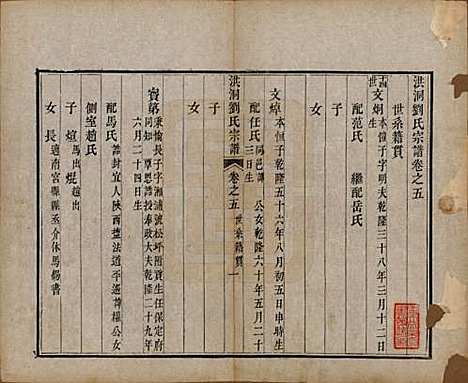 洪洞劉氏宗譜卷之五
世系籍貫
十四世 文炯 本恒子字明夫乾隆三十八年三月十二日
生
配范氏 繼配岳氏
子
女
文焯 本恒子乾隆五十六年八月初五日申時生
配任氏 同邑諱 公女乾隆六十年五月二十
三日生
子
女
洪洞劉氏宗譜 卷之五 世系籍貫 一
寶第 秉愉長子字湘浦號松坪附貢生任保定府
同知 覃恩誥授奉政大夫乾隆二十九年
六月二十四日生
配馬氏 誥封宜人陝西按察使諱 公女
側室趙氏
子 煊馬出 焜趙出
女 長適南宮縣縣丞介休馬錫書